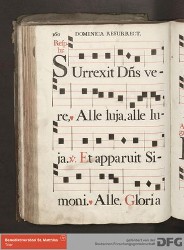 160 DOMINICA RESURRECT.
Resp.
br.
Surrexit Dñs ve-
re, Alle luja, alle lu-
ja. ℣. Et apparuit Si-
moni. Alle. Gloria
DFG